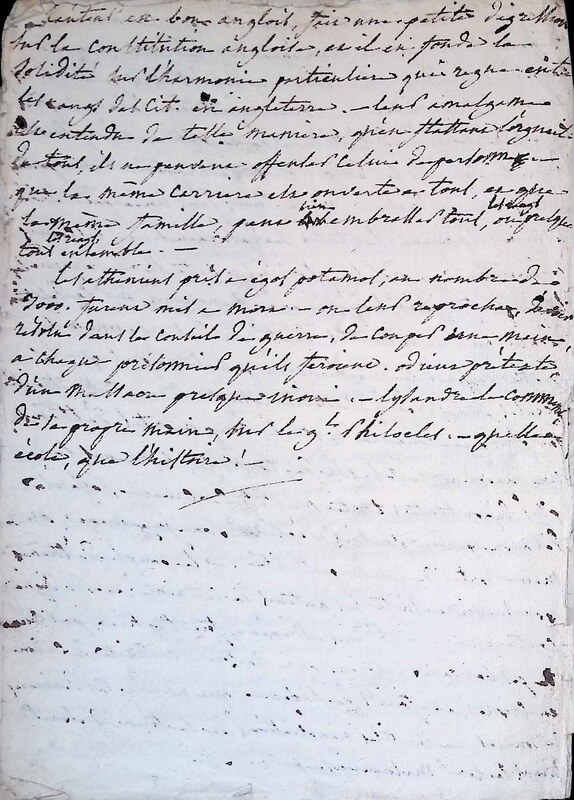 l'auteur en bon anglois, fait une petite digression
sur la constitution angloise, et il en fonde la
solidité sur l'harmonie particuliere qui regne entre
les rangs des cit. en angleterre. - leur amalgame
est entendu de telle maniere, qu'en flattant l'orgueil
de tous, ils ne peuvent offenser celui de personne
que la même carriere est ouverte a tous, et que
la même famille, peut bien embrasser tous, les rangs ou presque
tous ensemble. -
les atheniens pris a egos potamos, au nombre de
3000. furent mis a mort - on leur reprocha, d'avoir
résolu dans les conseils de guerre, de couper une main,
a chaque prisonnier qu'ils feroient. odieux prétexte
d'un massacre presque inoui. - lysandre le commença
de sa propre main, sur le gal. Philocles. - quelle
école, que l'histoire! -